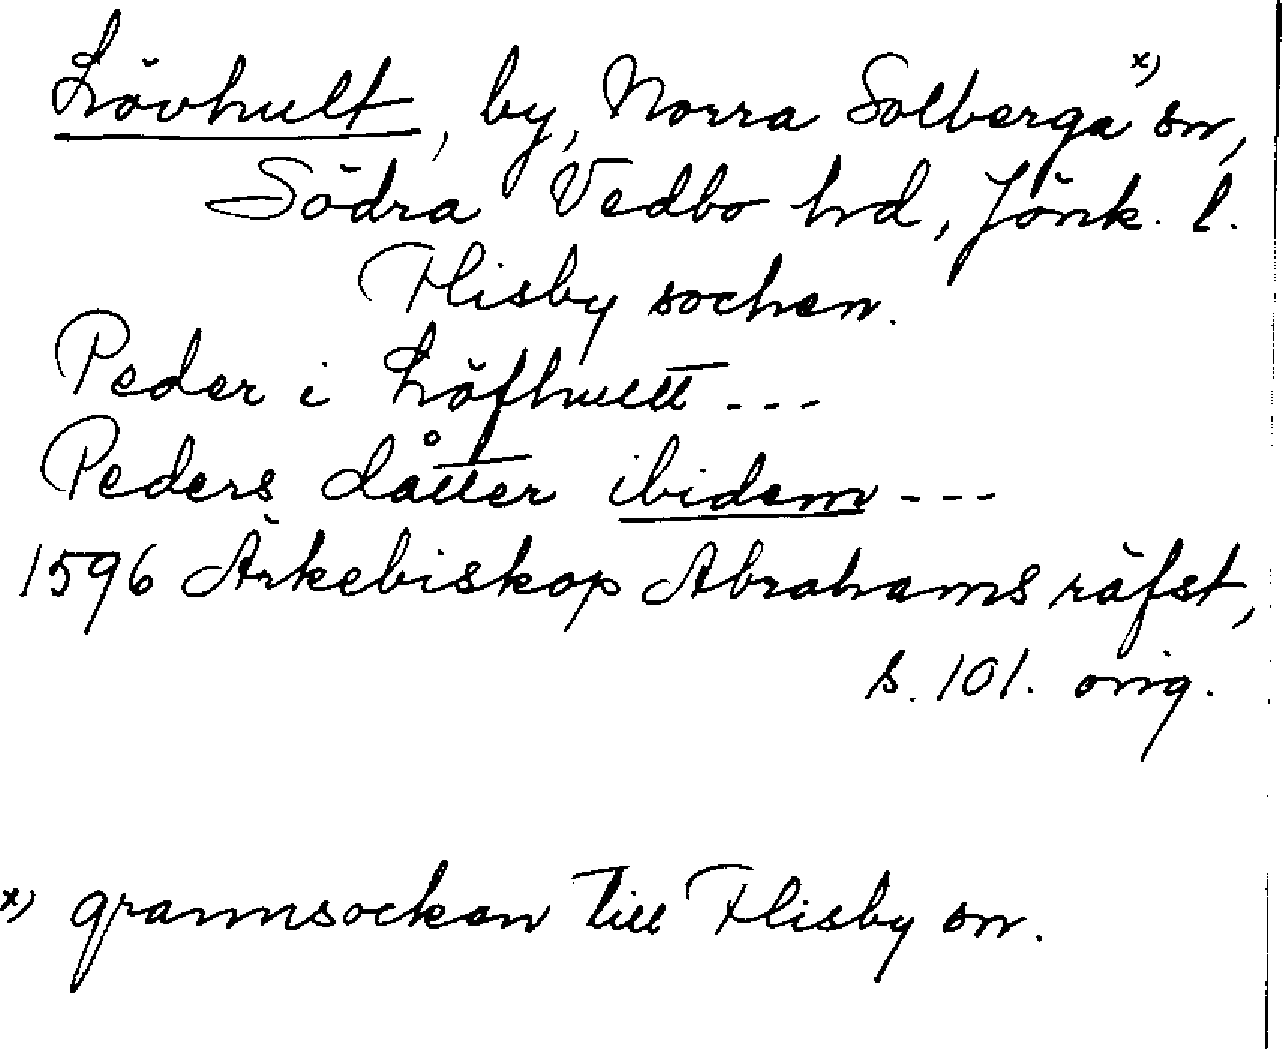 Lövhult, by, Norra Solberga x) sn,
Södra Vedbo hd, Jönk. l.
Flisby sochen.
Peder i Löfhultt ---
Peders dåtter ibidem ---
1596 Ärkebiskop Abrahams räfst,
s. 101. orig.
x) grannsocken till Flisby sn.